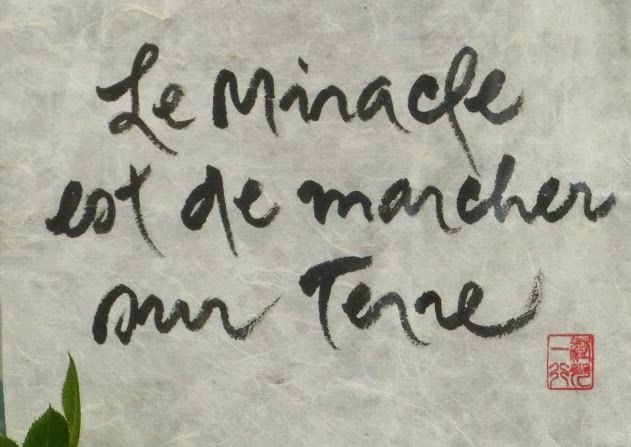 Le Miracle
est de marcher
sur Terre